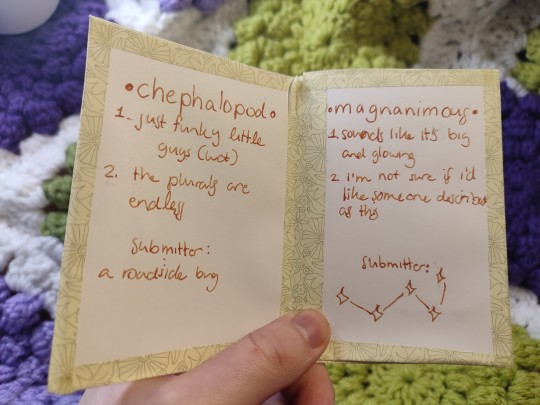 •chephalopod•
1. just funky little
guys (wot)
2. the plurals are
endless
submitter:
a roadside bug
•magnanimous•
1. sounds like it's big
and glowing
2 i'm not sure if i'd
like someone described
as this
submitter: